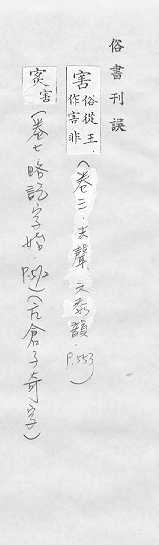 俗書刊誤
害 俗從王.
作害非
(卷三.去聲文泰韻. P.553)
害
(卷七略記字始. P.562)(亢倉子奇字)